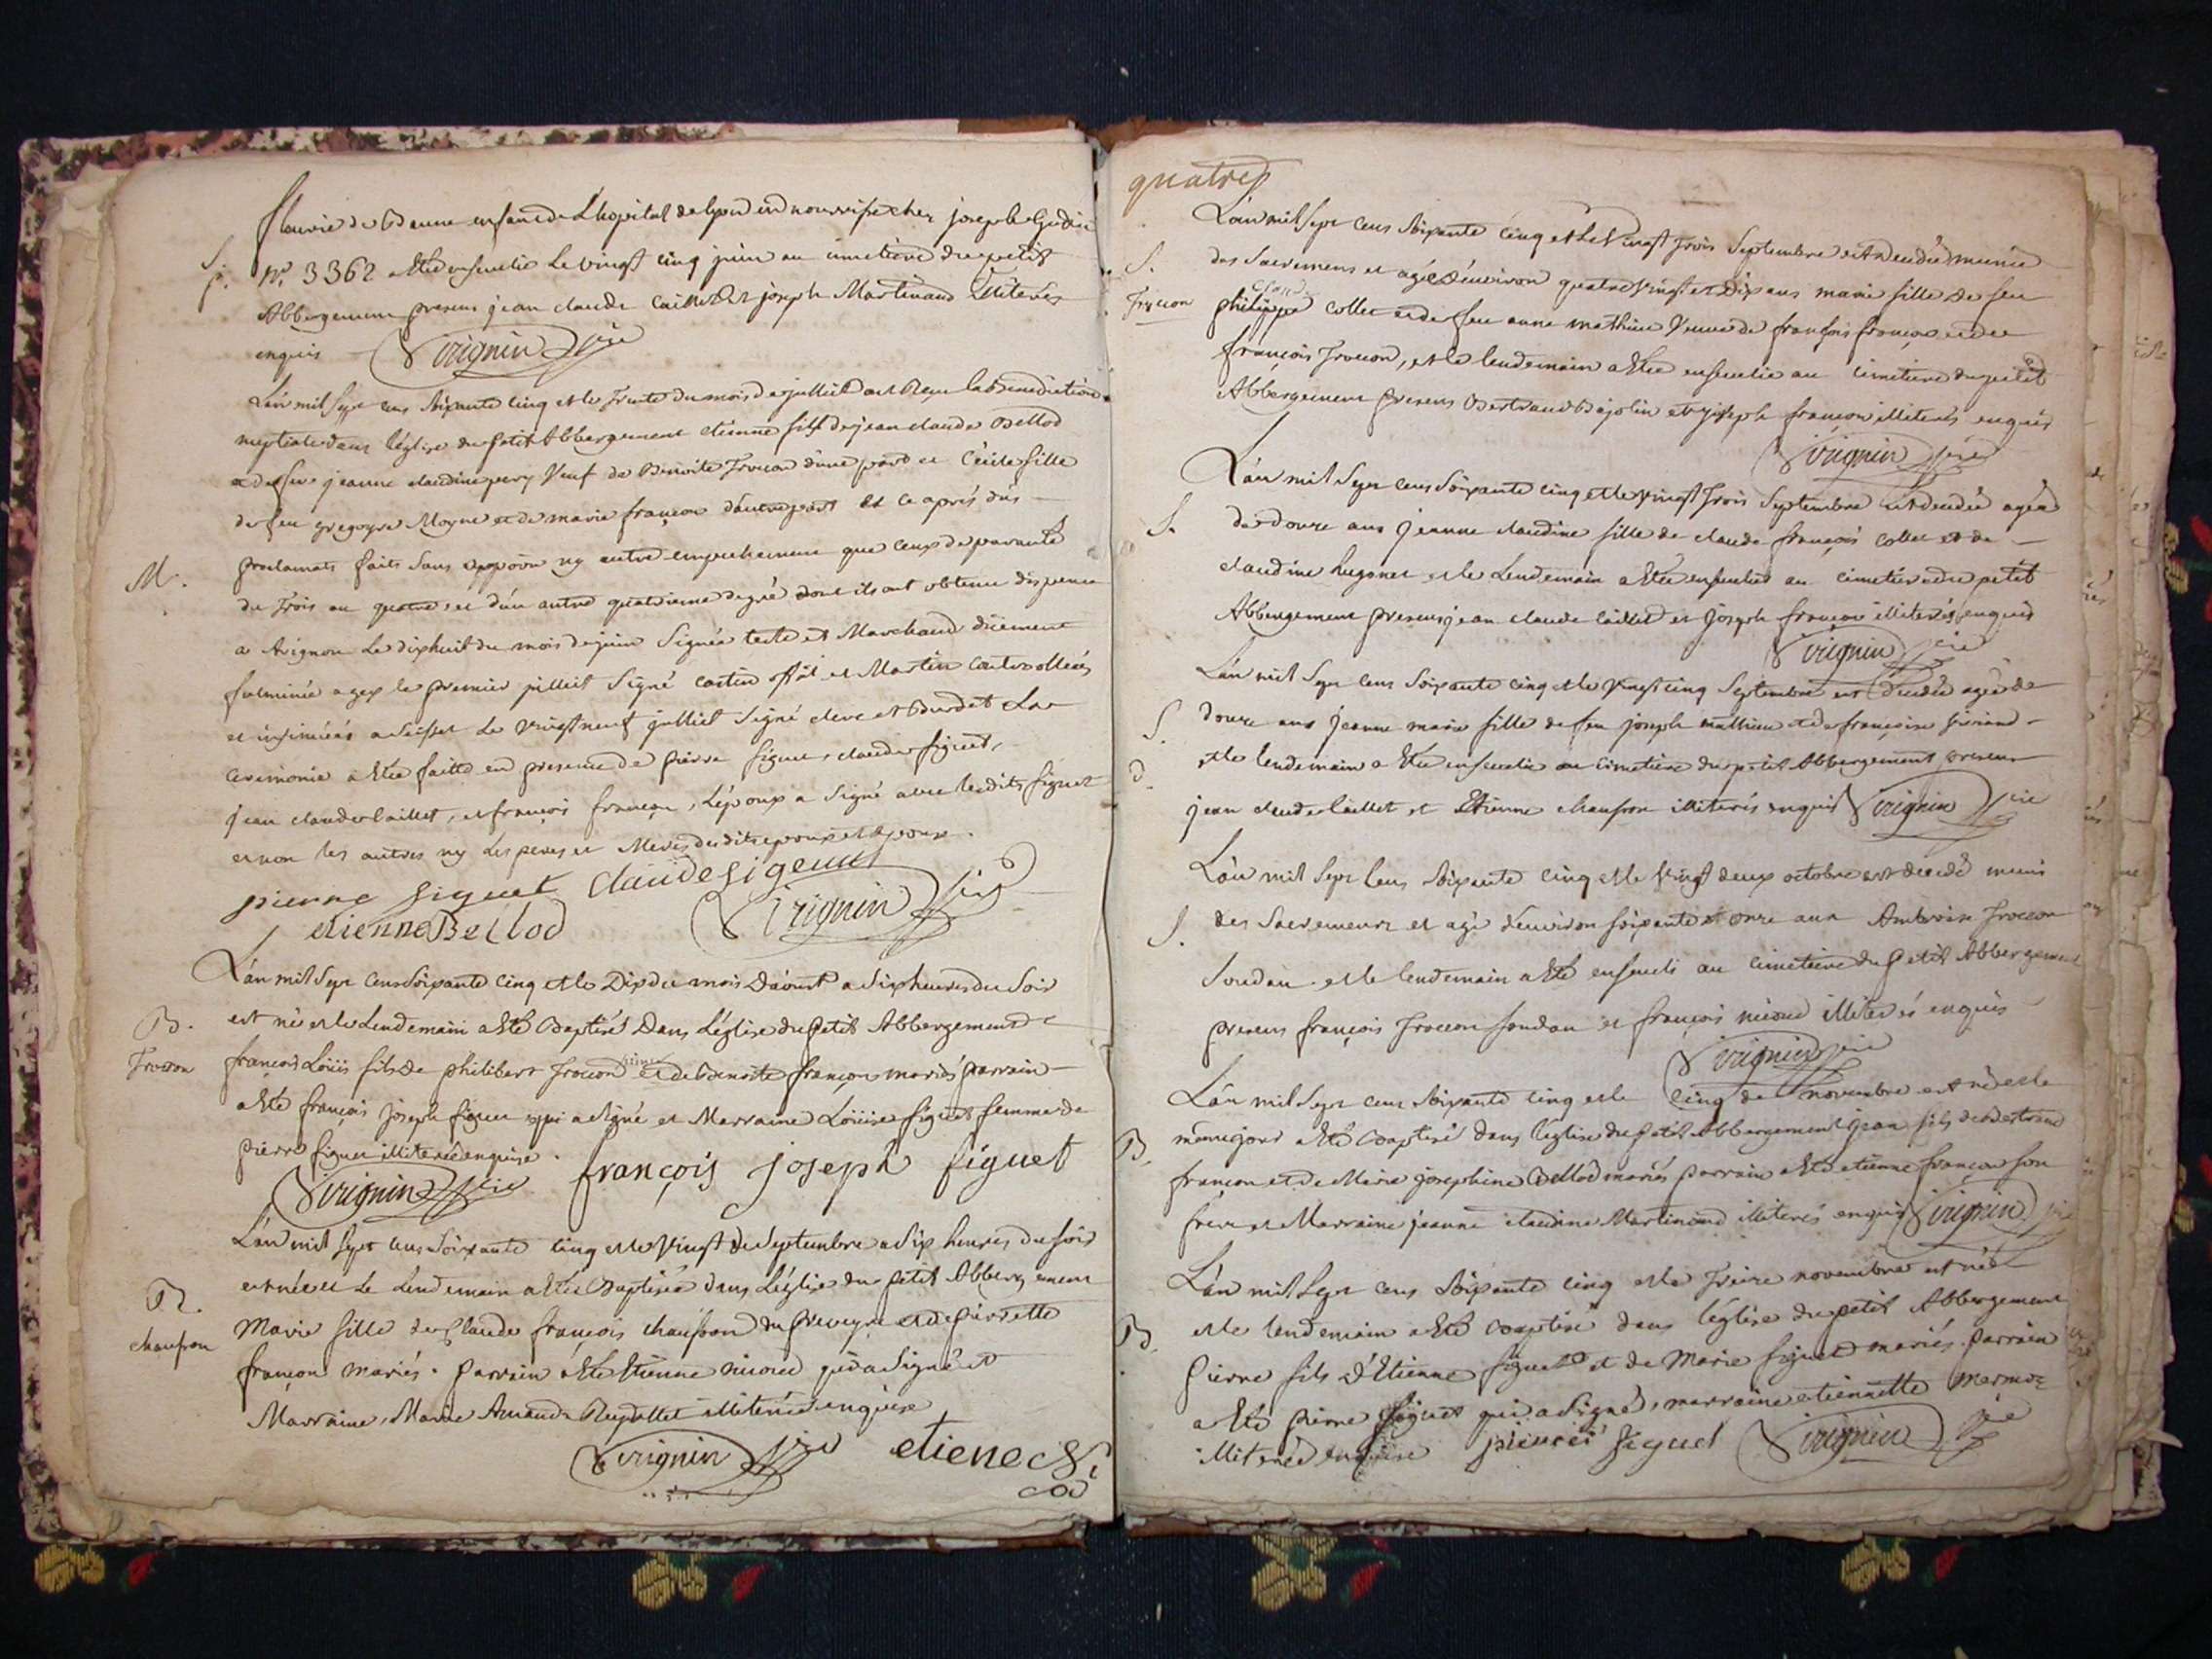 fleurie de Beaune enfant de L'hopital de lyon en nourrisse chez joseph
S. N.° 3362 a Eté ensevelie Le vingt cinq juin au cimetiere du petit
Abbergement presens jean claude Caillet et joseph Martinand illiterés
enquis Virignin
L'an mil Sept cens soixante cinq et le Trente du mois de jullliet ont Reçu la Benediction
nuptiale dans l'église du petit Abbergement etienne fils de jean claude Bellod
et de feue jeanne claudine pery Veuf de Benoite Trocon d'une part et Cécile fille
de feu gregoyre Moyne et de marie françon d'autre part et ce aprés dûs
M. proclamats faits Sans opp̄oōn ny autre empechement que ceux de parenté
du Trois au quatre, et d'un autre quatrieme degré dont ils ont obtenu dispence
a Avignon Le dixhuit du mois de juin Signée teste et Marchand düement
fulminée a gex le premier jullliet Signé castin offāl et Martin
et insinuées a Seissel Le vingt neuf jullliet Signé clerc et Burdet La
ceremonie a Eté faitte en presence de pierre figuet, claude figuet,
jean claude Caillet, et françois françon, L'époux a Signé avec lesdits figuet
et non les autres ny Les peres et Meres desdits epoux et epouse.
pierre figuet claude figeuet
etienne Bellod Virignin
L'an mil Sept cens Soixante cinq et le Dix du mois D'aoust a Six heures du Soir
B. est né et le Lendemain a Eté Baptisé Dans L'église du petit Abbergement
Trocon françois Loüis fils de philibert Trocon et de Benoite françon mariés parrain
a Eté françois joseph figuet qui a Signé et Marraine Loüise figuet femme de
pierre figuet illiterée enquise.
Virignin françois joseph figuet
L'an mil Sept cens Soixante cinq et le Vingt de Septembre a Six heures du Soir
est née et Le Lendemain a Eté Baptisée dans L'église du petit Abbergement
B. Marie fille de Claude françois chanfron du et de pierrette
chanfron françon mariés. parrain a Eté Etienne nicod qui a Signé et
Marraine, Marie illiterée enquise
Virignin etiene Ni
cod
quatre
L'an mil Sept cens Soixante cinq et Le Vingt Trois Septembre est Decedée munie
S. des Sacremens et agée d'environ quatre vingt et dix ans marie fille de feu
Trocon philippe collet et de feu anne mathieu Veuve de françois françon et de
françois Trocon, et le lendemain a Eté ensevelie au cimetiere du petit
Abbergement presens Bertrand et joseph françon illiterés enquis
Virignin
L'an mil Sept cens Soixante cinq et le vingt Trois Septembre est decedée agée
S. de douze ans jeanne claudine fille de claude françois collet et de
claudine hugonet et le Lendemain a Eté ensevelie au cimetiere du petit
Abbergement presens jean claude Caillet et joseph françon illiterés enquis
Virignin
L'an mil Sept cens Soixante cinq et le vingt cinq Septembre est decedée agée de
S. douze ans jeanne marie fille de feu joseph mathieu et de françoise
et le lendemain a Eté ensevelie au cimetiere du petit Abbergement presens
jean claude Caillet et Etienne chanfron illiterés enquis Virignin
L'an mil Sept cens Soixante cinq et le vingt deux octobre est decedé muni
S. des Sacremens et agé d'environ soixante et onze ans Ambroise Trocon
Soudan et le lendemain a Eté enseveli au cimetiere du petit Abbergement
presens françois Trocon soudan et françois nicod illiterés enquis
Virignin
L'an mil Sept cens soixante cinq et le cinq de novembre est né et le
B. meme jour a Eté Baptisé dans l'église du petit Abbergement jean fils de Bertrand
françon et de Marie josephine Bellod mariés parrain a Eté etienne françon son
frere et Marraine jeanne claudine Martinand illiterés enquis Virignin
L'an mil Sept cens Soixante cinq et le Treize novembre est né
B. et le lendemain a Eté Baptisé dans l'église du petit Abbergement
pierre fils d'Etienne figuet et de Marie figuet mariés. parrain
a Eté pierre figuet qui a Signé, marraine etiennette mermoz
illiterée enquise pierre figuet Virignin